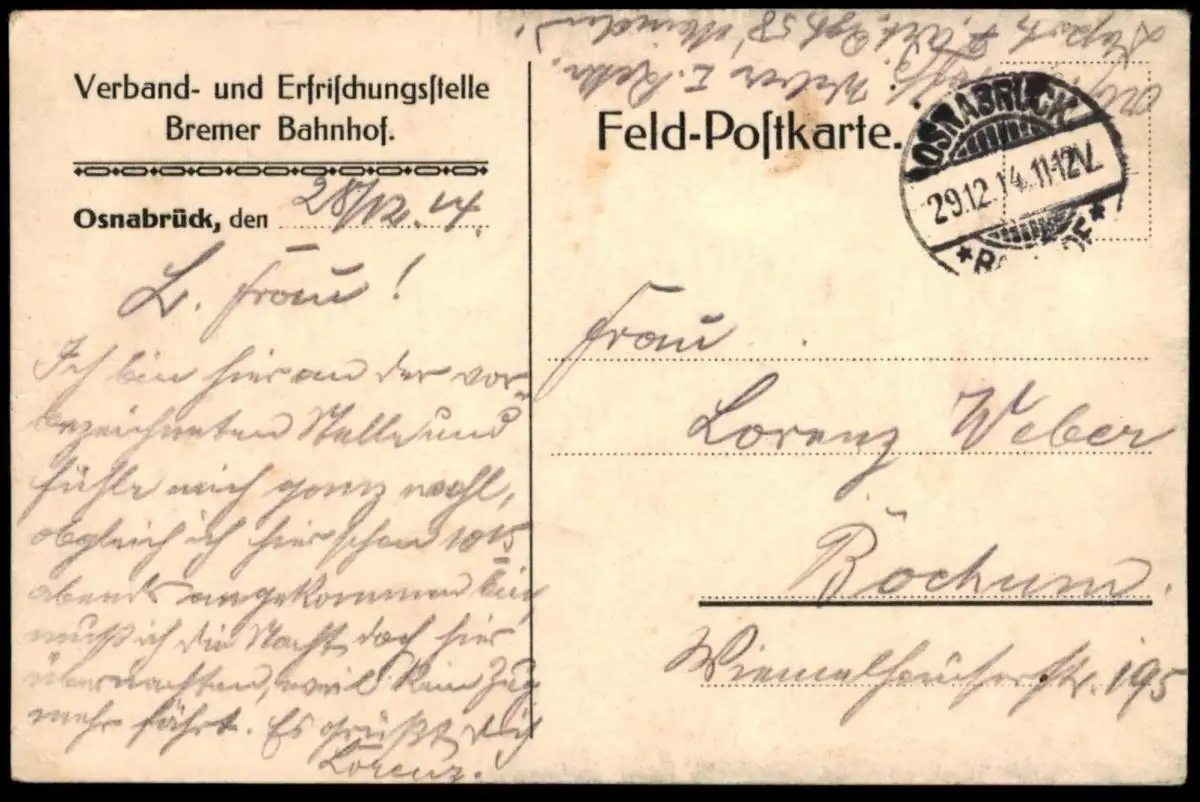 Verband- und Erfrischungsstelle
Bremer Bahnhof.
Osnabrück, den 28/12.14.
L. Frau!
Ich bin hier an der vor-
bezeichneten Stelle und
fühle mich ganz wohl,
obgleich ich hier schon 10 15
abends angekommen bin,
muß ich die Nacht doch hier
übernachten, weil kein Zug
mehr fährt. Es grüßt dich
Lorenz.
Feld-Postkarte.
OSNABRÜCK
29.12.14.11-12V.
Frau
Lorenz Weber
Bochum.
Wiemelhauserstr. 195